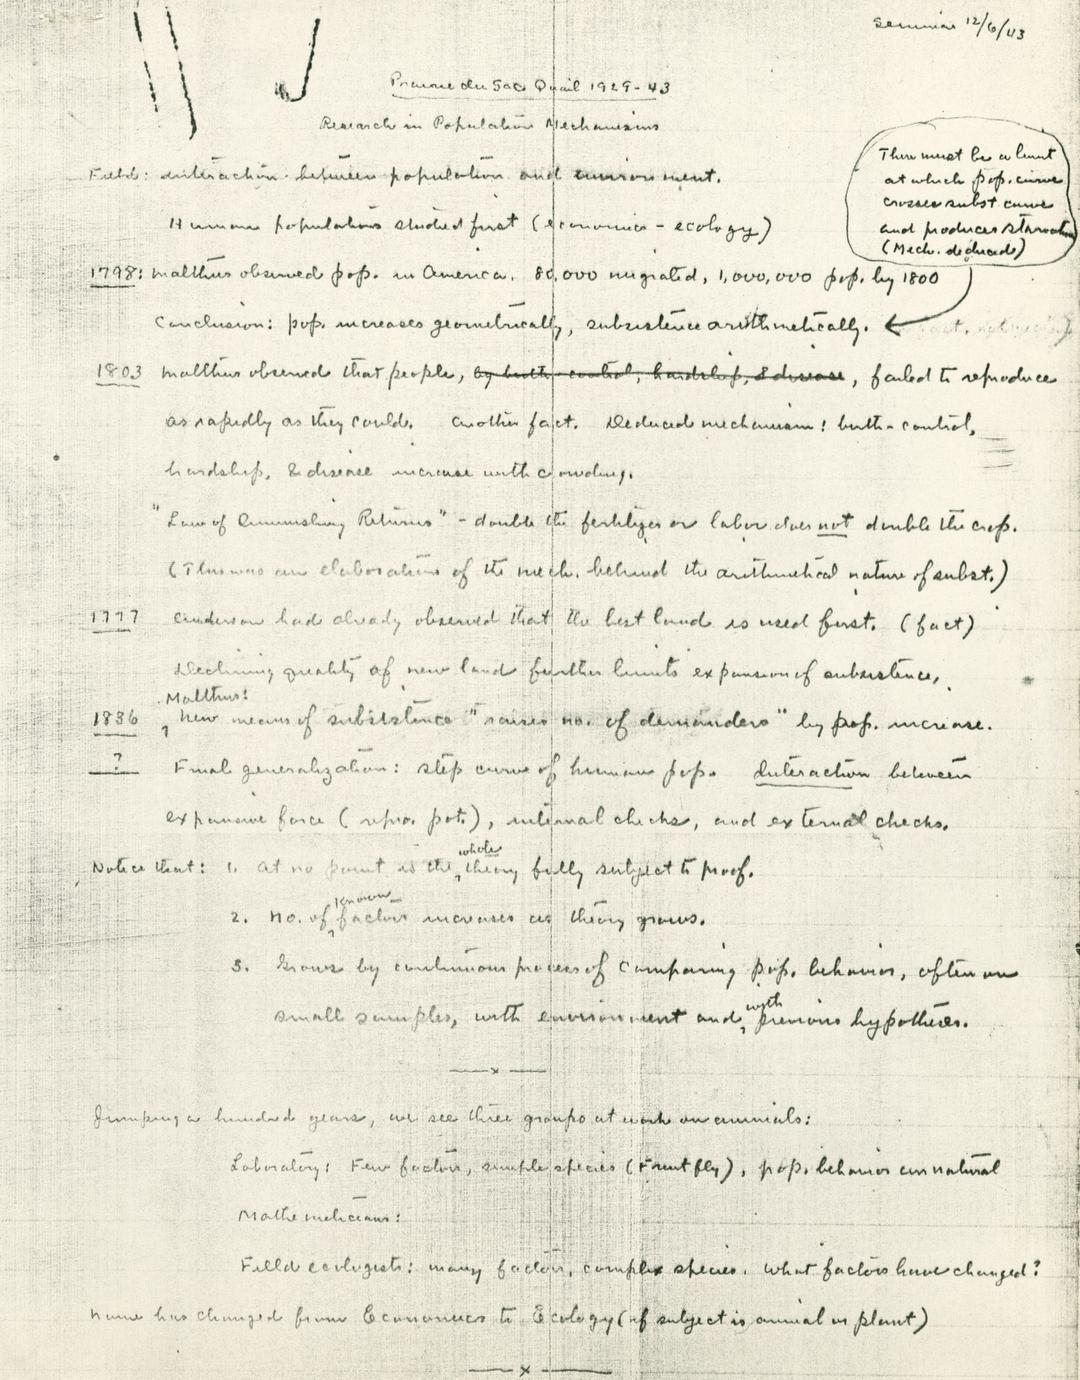 Seminar 12/6/43
Prairie du Sac Quail 1929-43
Research in Population Mechanisms
There must be a limit
at which pop. curve
crosses subst curve
and produces starvation
(Mech. deduced)
Field: interaction between population and environment.
Human populations studied first (economics - ecology)
1798: Malthus observed pop. in America. 80,000 migrated, 1,000,000 pop. by 1800
Conclusion: pop. increases geometrically, subsistence arithmetically.
1803 Malthus observed that people, by birth-control, hardship, & disease, failed to reproduce
as rapidly as they could. Another fact. Deduced mechanism: birth-control,
hardship, & disease increase with crowding.
"Law of Diminishing Returns" - double the fertilizer or labor does not double the crop.
(This was an elaboration of the mech. behind the arithmetical nature of subst.)
1777 Anderson had already observed that the best land is used first. (fact)
Declining quality of new land further limits expansion of subsistence.
Malthus:
1836 New means of subsistence "raises no. of demanders" by pop. increase.
? Final generalization: step curve of human pop. Interaction between
expansive force (repro. pot.), internal checks, and external checks.
Notice that: 1. At no point is the whole theory fully subject to proof.
2. No. of known factors increases as theory grows.
3. Grows by continuous process of comparing pop. behavior, often on
small samples, with environment and with previous hypotheses.
—x—
Jumping a hundred years, we see three groups at work on animals:
Laboratory: Few factors, simple species (Fruit fly), pop. behavior unnatural
Mathematicians:
Field ecologists: many factors, complex species. What factors have changed?
Name has changed from Economics to Ecology (if subject is animal or plant)
—x—